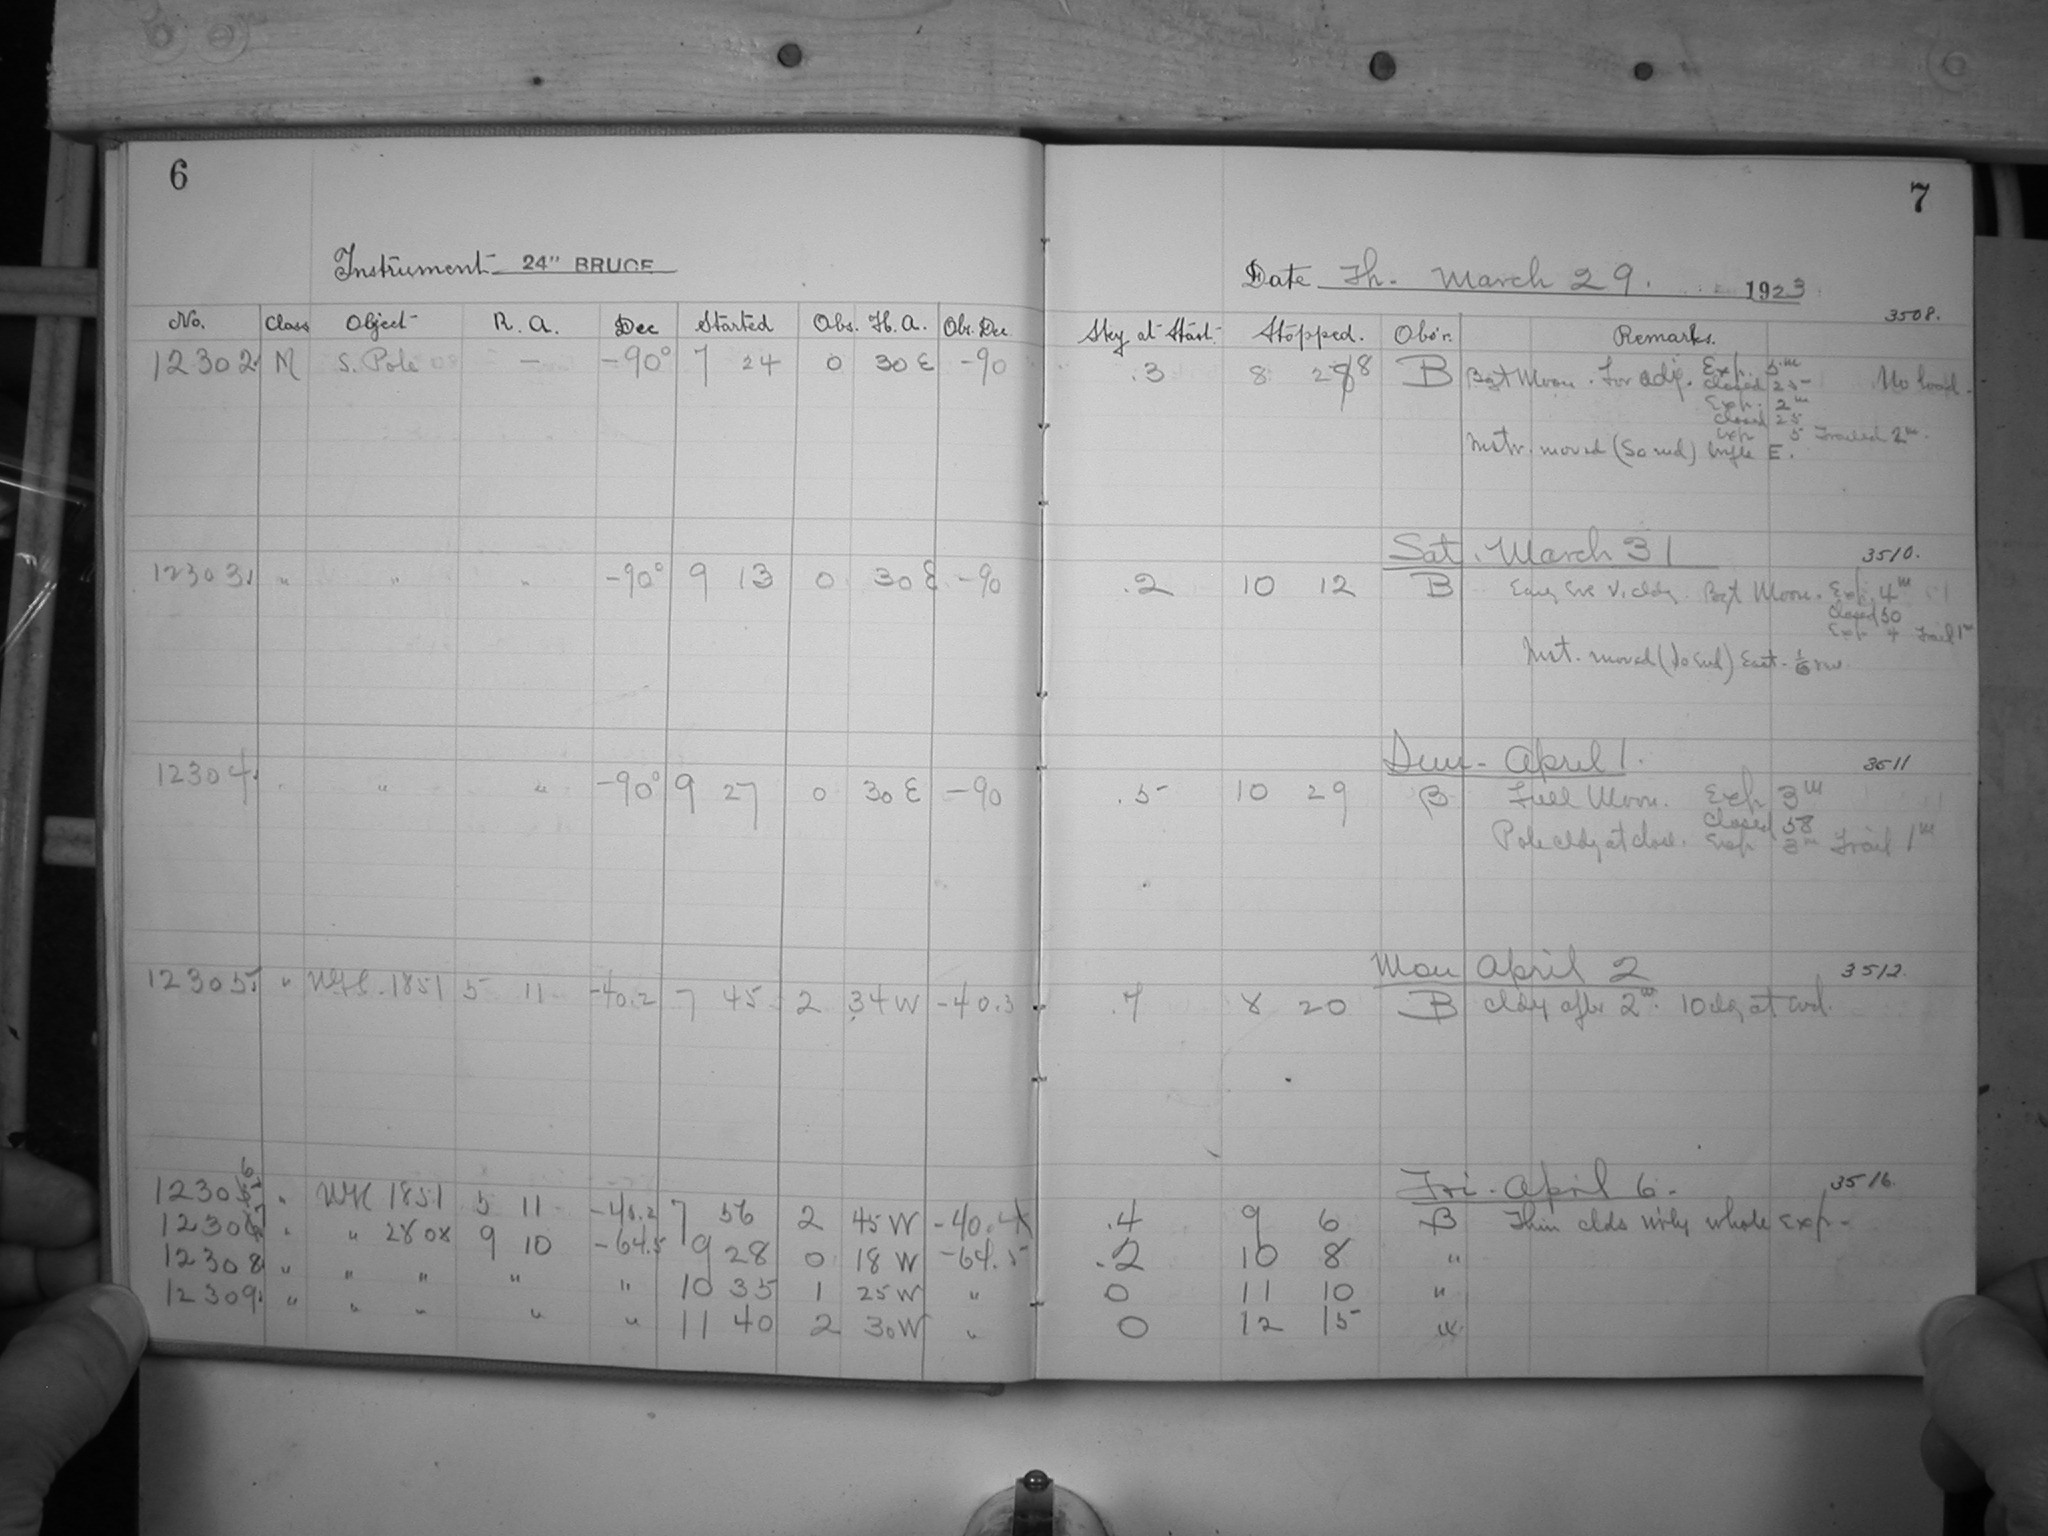 6
7
Instrument 24" BRUCE
Date Th. March 29. 1923
3508.
No. Class Object R. A. Dec Started Obs. H. A. Obs. Dec.
Sky at Start. Stopped. Obs'r. Remarks.
12302. M S. Pole — -90° 7 24 0 30 E -90
.3 8 28 B Bgt Moon. For adj. Exp. 5m
closed 25
Exp. 2m
closed 25
Exp 5 Trailed 2m.
Instr. moved (So end) E.
Sat. March 31 3510.
12303. " " " -90° 9 13 0 30 E -90
.2 10 12 B Early Eve v. cldy. Bgt Moon. Exp. 4m
Closed 50
Exp 4 Trail 1m
Inst. moved (So end) East 1/6 rev
Sun. April 1. 3511
12304. " " " -90° 9 27 0 30 E -90
.5 10 29 B Full Moon. Exp 3m
Closed 58
Pole cldy at close. Exp 3m Trail 1m
Mon April 2 3512.
12305. " WH. 1851 5 11 -40.2 7 45 2 34 W -40.3
.7 8 20 B cldy after 2m. 10 cldy at end.
Fri. April 6. 3516.
12306 " WH 1851 5 11 -40.2 7 56 2 45 W -40.4
.4 9 6 B Thin clds nrly whole Exp.
12307 " " 2808 9 10 -64.5 9 28 0 18 W -64.5
.2 10 8 "
12308. " " " " " 10 35 1 25 W "
0 11 10 "
12309. " " " " " 11 40 2 30 W "
0 12 15 "